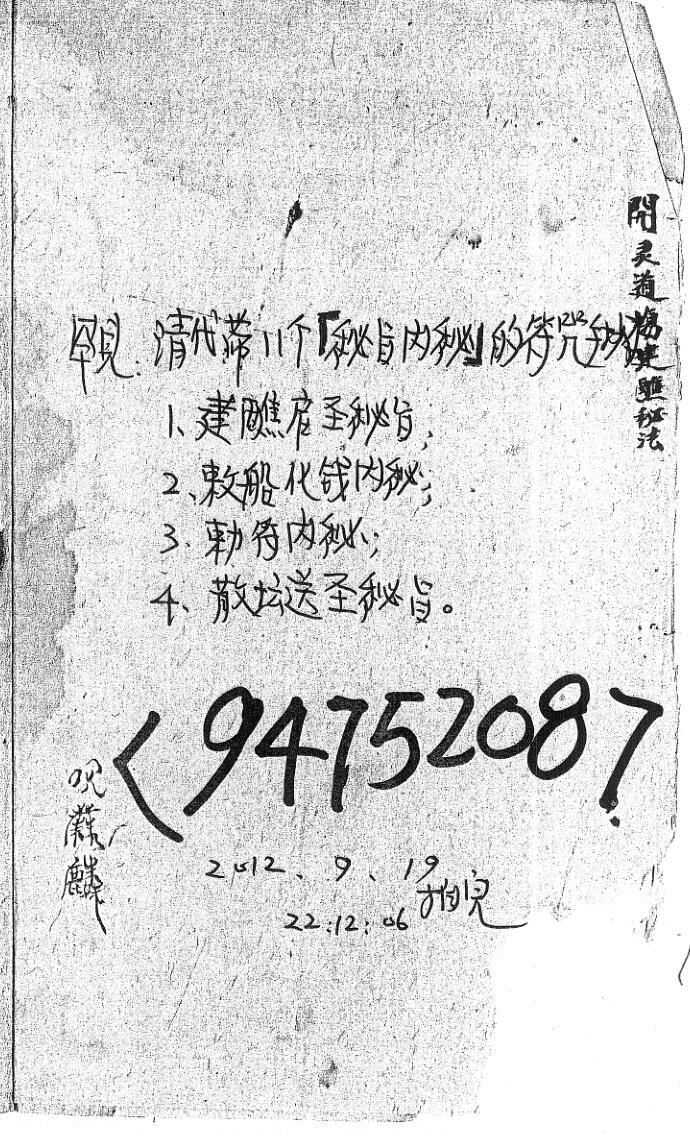 開灵道場建醮秘法
罕见:清代带11个「秘旨内秘」的符咒
1、建醮启圣秘旨;
2、敕船化钱内秘;
3、勅符内秘;
4、散坛送圣秘旨。
<94752087
2012、9、19
22:12:06